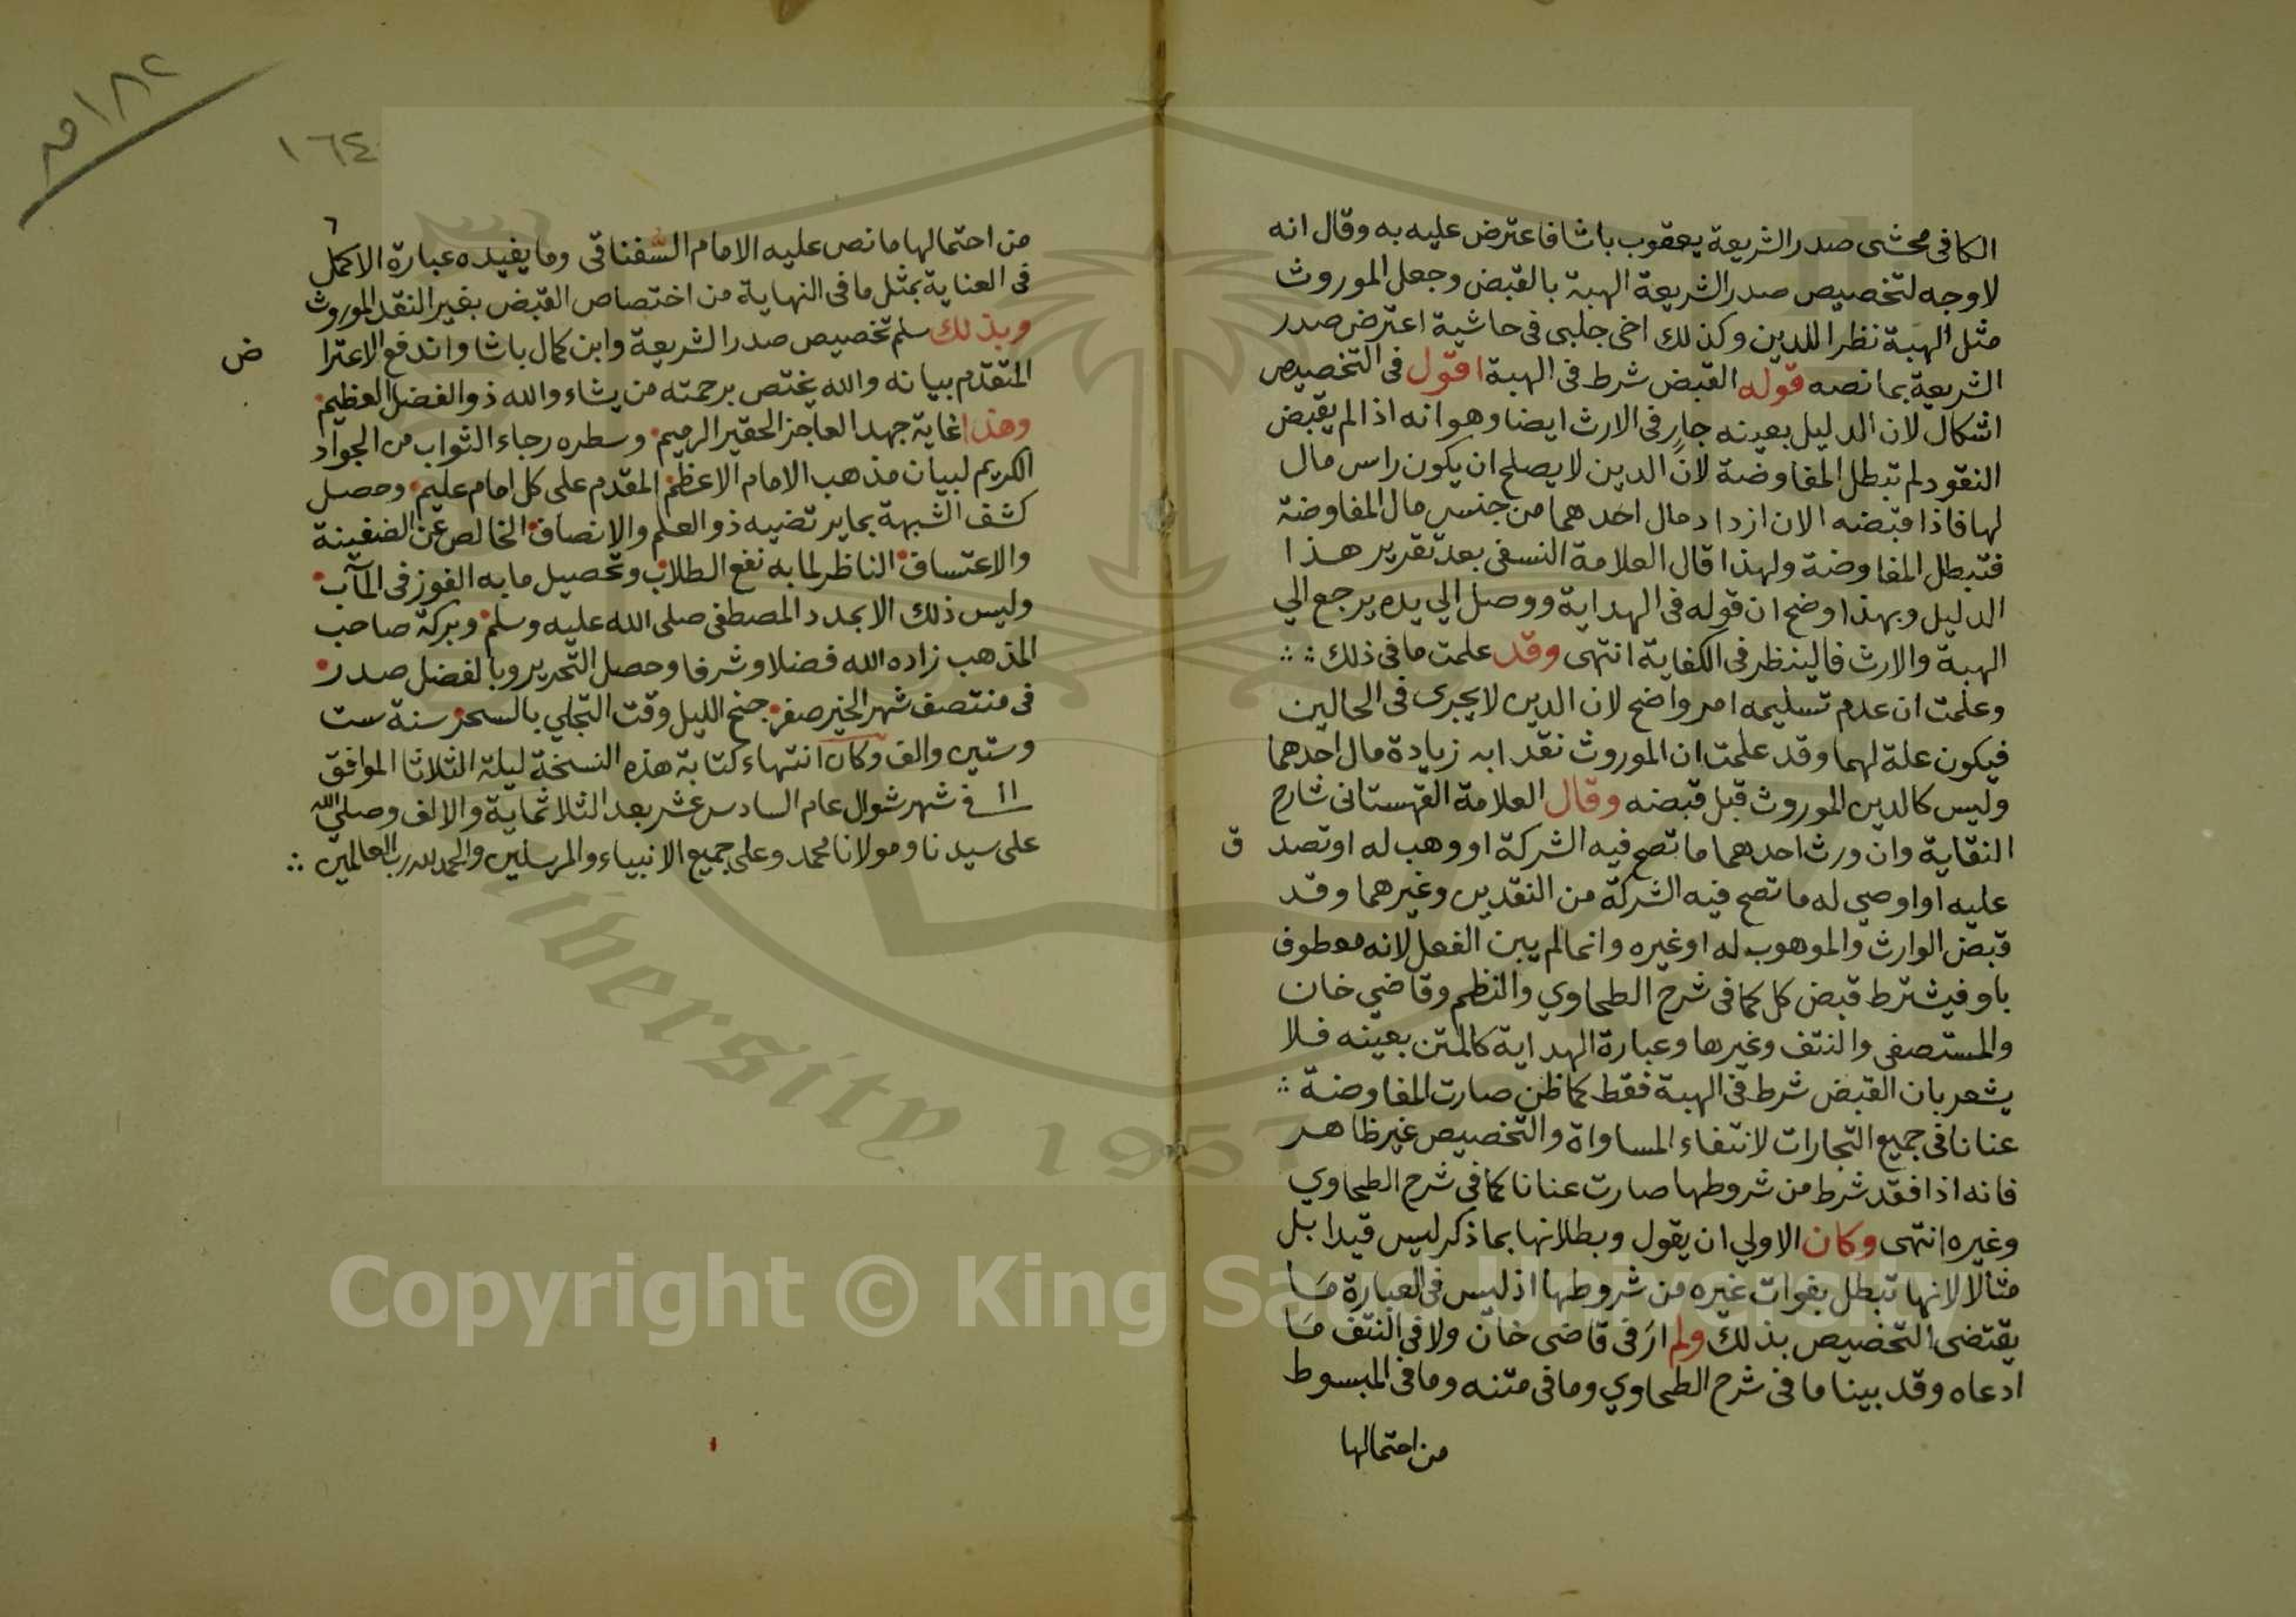 الكافى محشى صدر الشريعة يعقوب باشا فاعترض عليه به وقال انه
لا وجه لتخصيص صدر الشريعة الهبة بالقبض وجعل الموروث
مثل الهبة نظرا للدين وكذلك اخى جلبى فى حاشية اعترض صدر
الشريعة بما نصه قوله القبض شرط فى الهبة اقول فى التخصيص
اشكال لان الدليل بعينه جارٍ فى الارث ايضا وهو انه اذا لم يقبض
النقود لم تبطل المفاوضة لانّ الدين لا يصلح ان يكون راس مال
لها فاذا قبضه الان ازداد مال احدهما من جنس مال المفاوضة
فتبطل المفاوضة ولهذا قال العلامة النسفى بعد تقرير هذا
الدليل وبهذا وضح ان قوله فى الهداية ووصل الي يده يرجع الي
الهبة والارث فالينظر فى الكفاية انتهى وقد علمت ما فى ذلك
وعلمت ان عدم تسليمه امر واضح لان الدين لا يجرى فى الحالين
فيكون علة لهما وقد علمت ان الموروث نقد ابه زيادة مال احدهما
وليس كالدين الموروث قبل قبضه وقال العلامة القهستانى شارح
النقاية وان ورث احدهما ما تصح فيه الشركة او وهب له او تصد ق
عليه او اوصي له ما تصح فيه الشركة من النقدين وغيرهما وقد
قبض الوارث والموهوب له او غيره وانما لم يبن الفعل لانه معطوف
باو فيشترط قبض كل كما فى شرح الطحاوي والنظم وقاضي خان
والمستصفى والنتف وغيرها وعبارة الهداية كالمتن بعينه فلا
يشعر بان القبض شرط فى الهبة فقط كما ظن صارت المفاوضة
عنانا فى جميع التجارات لانتفاء المساواة والتخصيص غير ظاهر
فانه اذا فقد شرط من شروطها صارت عنانا كما فى شرح الطحاوي
وغيره انتهى وكان الاولي ان يقول وبطلانها بما ذكر ليس قيدا بل
مثالا لانها تبطل بفوات غيره من شروطها اذ ليس فى العبارة مَا
يقتضى التخصيص بذلك ولم ارَ فى قاضى خان ولا فى النتف مَا
ادعاه وقد بينا ما فى شرح الطحاوي وما فى متنه وما فى المبسوط
من احتمالها
١٨٢
١٦٤
٦
من احتمالها ما نص عليه الامام السَّغناقى وما يفيده عبارة الاكمل
فى العناية بمثل ما فى النهاية من اختصاص القبض بغير النقد الموروث
وبذلك سلم تخصيص صدر الشريعة وابن كمال باشا واندفع الاعترا ض
المتقدم بيانه والله يختص برحمته من يشاء والله ذو الفضل العظيم
وهذا غاية جهد العاجز الحقير الرميم وسطره رجاء الثواب من الجواد
الكريم لبيان مذهب الامام الاعظم المقدم على كل امام عليم وحصل
كشف الشبهة بما يرتضيه ذو العلم والانصاف الخالص عن الضغينة
والاعتساف الناظر لما به نفع الطلاب وتحصيل ما به الفوز فى المآب
وليس ذلك الا بمدد المصطفى صلى الله عليه وسلم وبركة صاحب
المذهب زاده الله فضلا وشرفا وحصل التحرير وبالفضل صدر
فى منتصف شهر الخير صفر جنح الليل وقت التجلي بالسحر سنة ست
وستين والف وكان انتهاء كتابة هذه النسخة ليلة الثلاثا الموافق
١١ فى شهر شوال عام السادس عشر بعد الثلاثماية والالف وصلي الله
على سيدنا ومولانا محمد وعلى جميع الانبياء والمرسلين والحمد لله رب العالمين
iversity 1957
Copyright © King Saud University